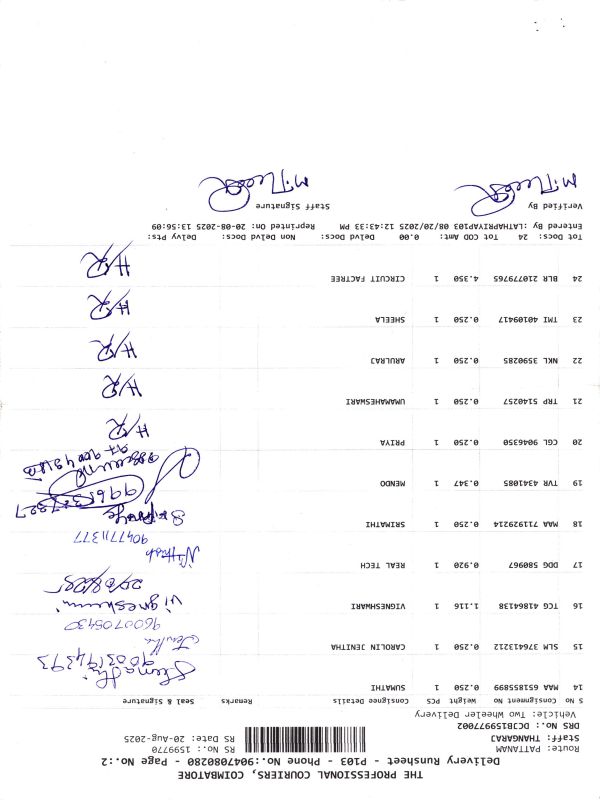 THE PROFESSIONAL COURIERS, COIMBATORE
Delivery Runsheet - P103 - Phone No.:9047080280 - Page No.:2
Route: PATTANAM
Staff: THANGARAJ RS No.: RS 1599770
DRS No.: DCJB15997002 RS Date: 20-Aug-2025
Vehicle: Two Wheeler Delivery
S No Consignment No Weight PCS Consignee Details Remarks Seal & Signature
14 MAA 651855899 0.250 1 SUMATHI
9003194393
15 SLM 376413212 0.250 1 CAROLIN JENITHA Jenitha
9600705430
16 TCG 4186438 1.116 1 VIGNESHWARI Vigneshwari
20/08/25
17 DDG 580967 0.920 1 REAL TECH Nithish
9047711377
18 MAA 711529214 0.250 1 SRIMATHI
19 TVR 341085 0.347 1 MENDO 9965327327
20 CGL 9046350 0.250 1 PRIYA H/R
21 TRP 5140257 0.250 1 UMAMAHESWARI H/R
22 NKL 3590285 0.250 1 ARULRAJ H/R
23 TMI 40109417 0.250 1 SHEELA H/R
24 BLR 210779765 4.350 1 CIRCUIT FACTREE H/R
Tot Docs: 24 Tot COD Amt: 0.00 Delvd Docs: Non Delvd Docs: Delvy Pts:
Entered By :LATHAPRIYAP103 08/20/2025 12:43:33 PM Reprinted On: 20-08-2025 13:56:09
Verified By Staff Signature